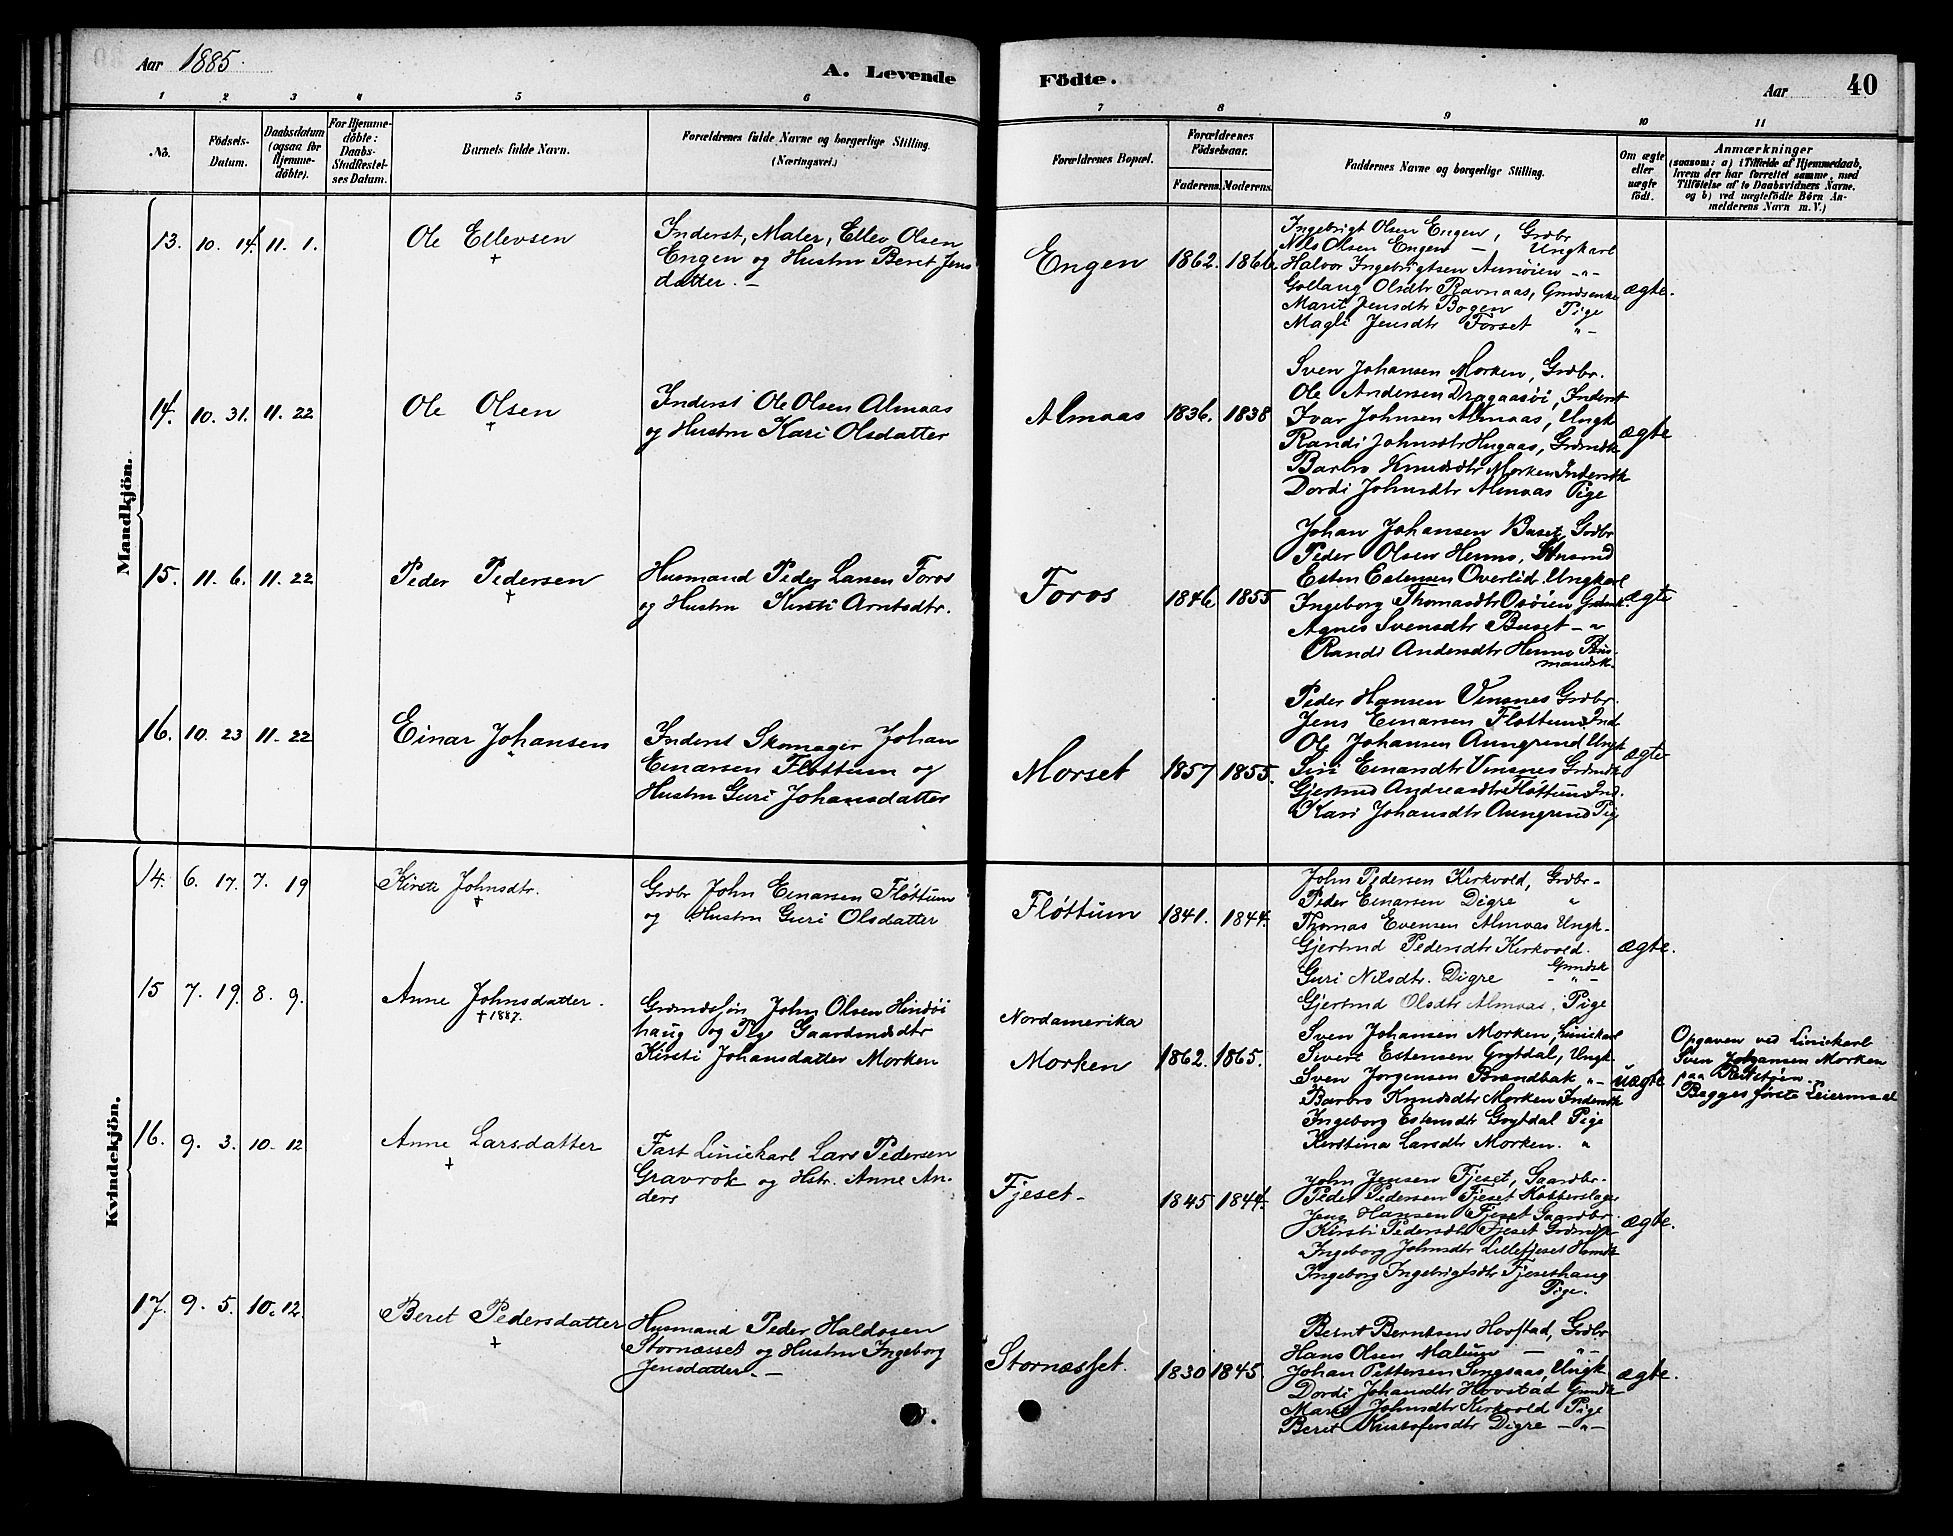 Aar 1885.
A. Levende Födte.
Aar
40
1 2 3 4 5 6 7 8 9 10 11
No.
Födsels-Datum.
Daabsdatum (ogsaa for Hjemme-döbte).
For Hjemme-döbte: Daabs-Stadfæstel-ses Datum.
Barnets fulde Navn.
Forældrenes fulde Navne og borgerlige Stilling. (Næringsvei.)
Forældrenes Bopæl.
Forældrenes Födselsaar.
Faderens. Moderens.
Faddernes Navne og borgerlige Stilling.
Om ægte eller uægte födt.
Anmærkninger
(saasom: a) i Tilfælde af Hjemmedaab,
hvem der har forrettet samme, med
Tilföielse af to Daabsvidners Navne.
og b) ved uægtefödte Börn An-
melderens Navn m. V.)
Mandkjön.
13. 10. 14. 11. 1.
Ole Ellevsen
+
Inderst, Maler, Ellev Olsen
Engen og Hustru Beret Jens
datter. -
Engen 1862. 1866.
Ingebrigt Olsen Engen, Grdbr
Nils Olsen Engen - Ungkarl
Halvor Ingebrigtsen Aunøien -"-
Gollaug Olsdtr Ravnaas, Grndsenke
Marit Jensdtr Bogen Pige
Magli Jensdtr Forset "-
ægte.
14. 10. 31. 11. 22
Ole Olsen
+
Inderst Ole Olsen Almaas
og Hustru Kari Olsdatter
Almaas 1836. 1838
Sven Johansen Morken, Grdbr.
Ole Andersen Dragaasøi, Inderst
Ivar Johnsen Almaas, Ungk
Randi Johnsdtr Hugaas, Grdmdk
Barbro Knudsdtr Morken Inderstk
Dordi Johnsdtr Almaas Pige
ægte
15. 11. 6. 11. 22
Peder Pedersen
+
Husmand Peder Larsen Foros
og Hustru Kirsti Arntsdtr.
Foros 1846 1855
Johan Johansen Buset, Grdbr
Peder Olsen Hermo, Husmd
Esten Estensen Overlid, Ungkarl
Ingeborg Thomasdtr Osøien Grdmk.
Agnes Svensdtr Buset - "
Randi Andersdtr Hermo Hus-
mandsk.
ægte
16. 10. 23 11. 22
Einar Johansen
Inderst Skomager Johan
Einarsen Fløttum og
Hustru Guri Johansdatter
Morset 1857 1855.
Peder Hansen Vinsnes Grdbr.
Jens Einarsen Fløttum Ind.
Ole Johansen Aungrind Ungk
Siri Einarsdtr Vinsnes Grdmdk
Gjertrud Andreasdtr Fløttum Ind.
Kari Johansdtr Aungrind Pig
ægte
Kvindekjön.
14. 6. 17. 7. 19
Kirsti Johnsdtr.
+
Grdbr John Einarsen Fløttum
og Hustru Guri Olsdatter
Fløttum 1841. 1844.
John Pedersen Kirkvold, Grdbr-
Peder Einarsen Digre "
Thomas Evensen Almaas Ungk-
Gjertrud Pedersdtr Kirkvold.
Grmdsk
Guri Nilsdtr. Digre - " -
Gjertrud Olsdtr Almaas, Pige
ægte.
15 7. 19. 8. 9.
Anne Johnsdatter.
+ 1887.
Grdmdssøn John Olsen Hindøi
haug og Pige Gaardmdsdtr
Kirsti Johansdatter Morken
Nordamerika
Morken 1862. 1865.
Sven Johansen Morken, Liniekarl
Sivert Estensen Grytdal, Ungk.
Sven Jørgensen Brændbak "-
Barbro Knudsdtr Morken Inderstk
Ingeborg Estensdtr Grytdal Pige
Kerstina Larsdtr Morken. "
uægte
Opgaven ved Liniekarl
Sven Johansen Morken
paa
Begges første Leiermaal
16. 9. 3. 10. 12
Anne Larsdatter
+
Fast Liniekarl Lars Pedersen
Gravrok og Hstr. Anne An-
ders
Fjeset- 1845 1844.
John Jensen Fjeset, Gaardbr.
Peder Pedersen Fjeset Kobberslager
Jens Hansen Fjeset Gaardbr.
Kirsti Pedersdtr Fjeset Grdmdk
Ingeborg Johnsdtr Lillefjeset Husmdk
Ingeborg Ingebrigtsdtr Fjesethaug
Pige.
ægte.
17. 9. 5. 10. 12.
Beret Pedersdatter
+
Husmand Peder Haldosen
Stornæsset og Hustru Ingeborg
Jensdatter. -
Stornæsset. 1830 1845.
Bernt Berntsen Hovstad, Grdbr
Hans Olsen Malum - "-
Johan Pettersen Singsaas, Ungk
Dordi Johansdtr Hovstad Grmdk
Marit Johnsdtr Kirkvold Pige
Beret Kristofersdtr Digre -"-
ægte.